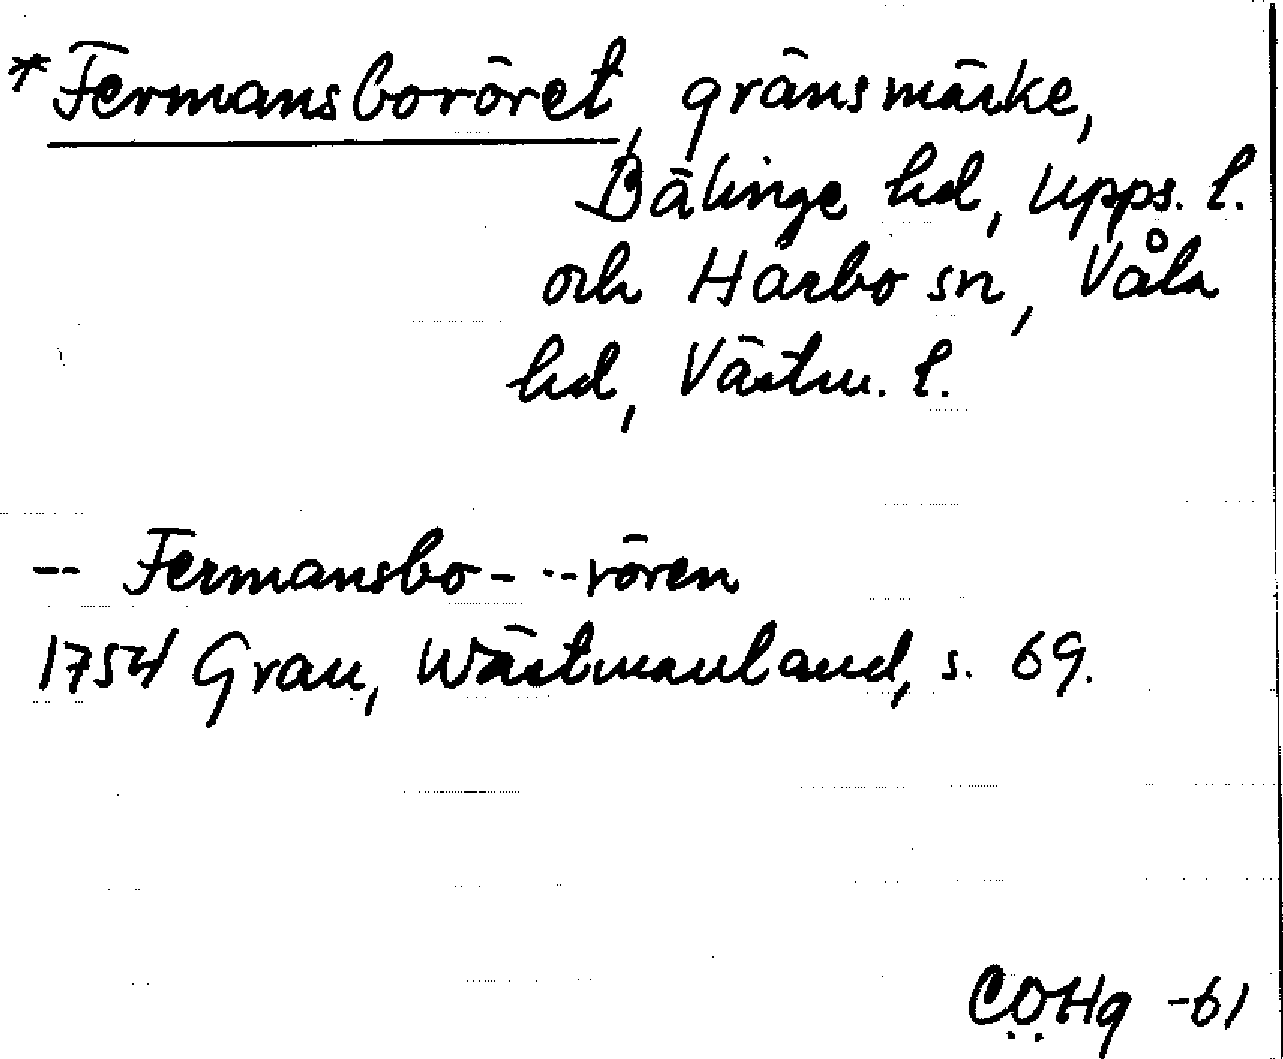 *Fermansboröret, gränsmärke,
Bälinge hd, Upps. l.
och Harbo sn, Våla
hd, Västm. l.
-- Fermansbo- --rören
1754 Grau, Wästmanland, s. 69.
CÖHg -61